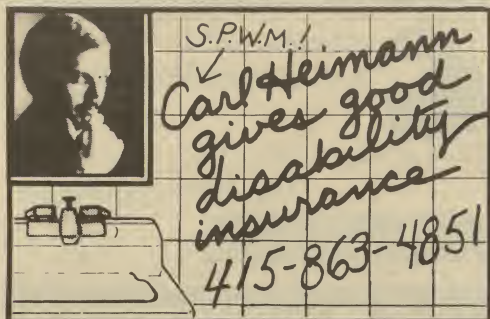 S.P.W.M.!
Carl Heimann
gives good
disability
insurance
415-863-4851